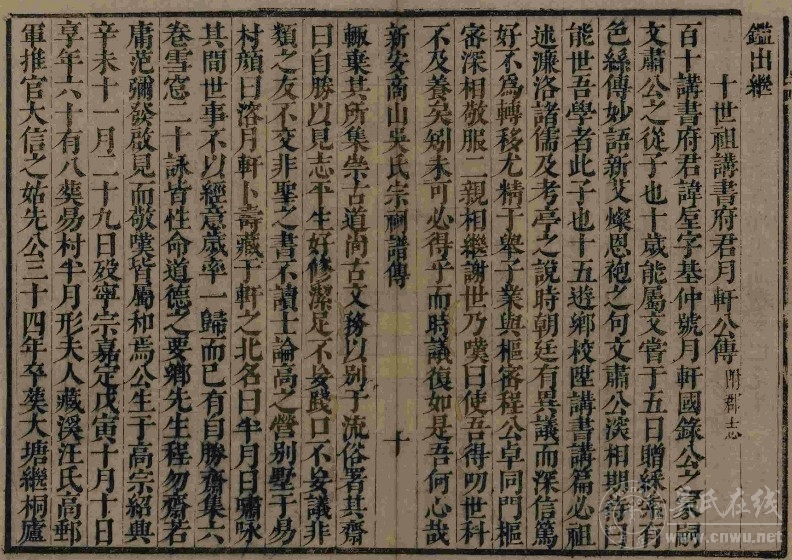 鑑出繼
十世祖講書府君月軒公傳 附郡志
百十講書府君諱垕字基仲號月軒國錄公之冢嗣
文肅公之從子也十歲能屬文嘗于五日贈綵筆有
色絲傳妙語新艾燦恩袍之句文肅公深相期待曰
能世吾學者此子也十五遊鄉校陞講書講篇必祖
述濂洛諸儒及考亭之說時朝廷有異議而深信篤
好不爲轉移尤精于舉子業與樞密程公卓同門樞
密深相敬服二親相繼謝世乃嘆曰使吾得叨世科
不及養矣矧未可必得乎而時議復如是吾何心哉
新安商山吳氏宗祠譜傳
十
輙棄其所集崇古道尚古文務以別于流俗署其齋
曰自勝以見志平生好修潔足不妄踐口不妄議非
類之友不交非聖之書不讀士論高之營別墅于易
村顏曰溶月軒卜壽藏于軒之北名曰半月日嘯咏
其間世事不以經意歲率一歸而已有自勝齋集六
卷雪窓二十詠皆性命道德之要鄉先生程勿齋若
庸范彌發啟見而敬嘆皆屬和焉公生于高宗紹興
辛未十一月二十九日歿寧宗嘉定戊寅十月十日
享年六十有八葬易村半月形夫人藏溪汪氏高郵
軍推官大信之姑先公三十四年卒葬大塘繼桐廬
吳氏在线
www.cnwu.net